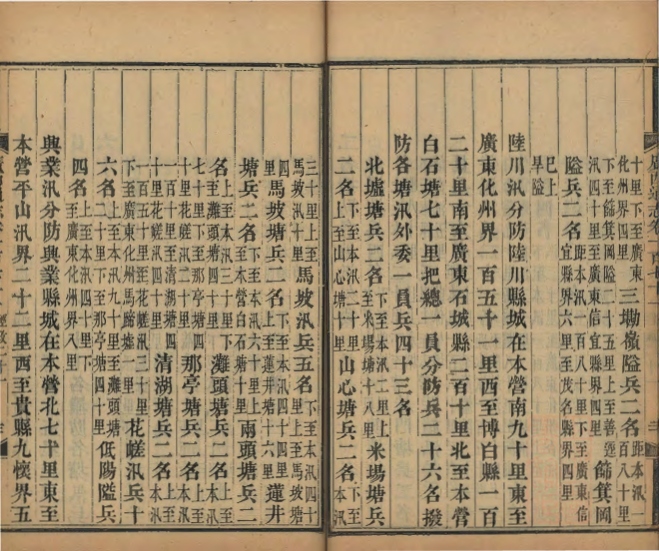 十里下至廣東化州界四里三㘭檄隘兵二名距本汛一百八十里
下至篩箕岡隘二十五里上至善逕汛四十里篩箕岡
隘兵二名距本汛一百八十里下至廣東信宜縣界六里至茂名縣界四里
已上旱隘
陸川汛分防陸川縣城在本營南九十里東至
廣東化州界一百五十一里西至博白縣一百
二十里南至廣東石城縣二百十里北至本營
白石塘七十里把總一員分防兵二十六名撥
防各塘汛外委一員兵四十三名
北墟塘兵二名下至本汛二里上至米場塘十八里米場塘兵
二名上至本汛二十里下至山心塘十里山心塘兵二名下至本汛
三十里上至馬坡汛十里馬坡汛兵五名下至本汛四十里上至馬坡塘
四里馬坡塘兵二名下至本汛四十四里上至蓮井塘十六里蓮井
塘兵二名下至本汛六十里上至本營白石塘十里兩頭塘兵二
名上至本汛三十里下至灘頭塘四十里灘頭塘兵二名上至本汛
七十里下至花嵯汛二十里那亭塘兵二名上至本汛
一百十里至花嵯汛四十里清湖塘兵二名上至本汛
一百五十里至花嵯汛三十里下至廣東化州馬蹄墟一里花嵯汛兵十
六名上至本汛九十里至灘頭塘二十里下至那亭塘四十里低陽隘兵
四名上至本汛四十里下至廣東化州界八里
興業汛分防興業縣城在本營北七十里東至
本營平山汛界二十二里西至貴縣九懷界五